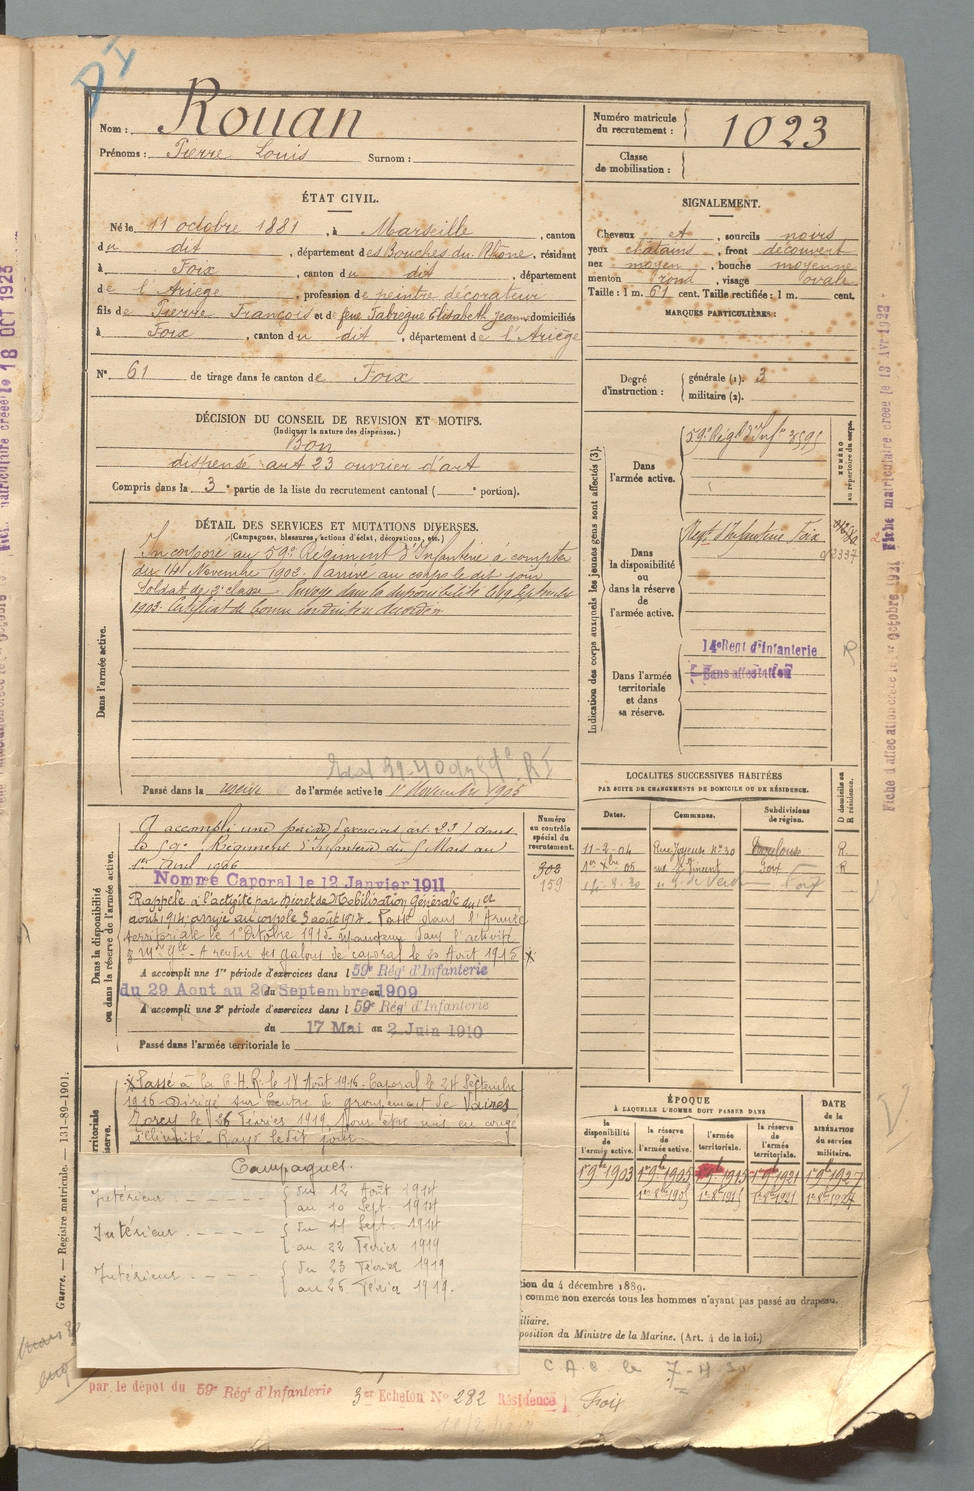 Nom : Rouan
Prénoms : Pierre Louis Surnom :
Numéro matricule du recrutement : 1023
Classe de mobilisation :
ÉTAT CIVIL.
Né le 11 octobre 1881, à Marseille, canton
du dit, département des Bouches du Rhône, résidant
à Foix, canton du dit, département
de l'Ariège, profession de peintre décorateur
fils de Pierre François et de feue Fabregue Elisabeth Jeanne domiciliés
à Foix, canton du dit, département de l'Ariège
N° 61 de tirage dans le canton de Foix
SIGNALEMENT.
Cheveux et, sourcils noirs
yeux chatains, front découvert
nez moyen, bouche moyenne
menton rond, visage ovale
Taille : 1 m. 61 cent. Taille rectifiée : 1 m. cent.
MARQUES PARTICULIÈRES :
Degré d'instruction : générale (1). 3
militaire (2).
DÉCISION DU CONSEIL DE REVISION ET MOTIFS.
(Indiquer la nature des dispenses.)
Bon
dispensé art 23 ouvrier d'art
Compris dans la 3e partie de la liste du recrutement cantonal ( e portion).
DÉTAIL DES SERVICES ET MUTATIONS DIVERSES.
(Campagnes, blessures, actions d'éclat, décorations, etc.)
Dans l'armée active.
Incorporé au 59e Régiment d'Infanterie à compter
du 14 Novembre 1902. arrivé au corps le dit jour
Soldat de 2e classe. Envoyé dans la disponibilité le 19 Septembre
1903. Certificat de bonne conduite accordé.
Passé dans la réserve de l'armée active le 1er Novembre 1905
Indication des corps auxquels les jeunes gens sont affectés (3).
NUMÉRO au répertoire du corps.
Dans l'armée active.
59e Régt d'Inf
Dans la disponibilité ou dans la réserve de l'armée active.
Régt d'Infanterie Foix
Dans l'armée territoriale et dans sa réserve.
14e Regt d'Infanterie
Sans affectation
R
LOCALITES SUCCESSIVES HABITÉES
PAR SUITE DE CHANGEMENTS DE DOMICILE OU DE RÉSIDENCE.
Dates. Communes. Subdivisions de région. D domicile ou R résidence.
11-2-04 Rue Joyeuse N° 30 Toulouse R.
1er Xbre 05 rue St Vincent Foix R
Foix
Dans la disponibilité ou dans la réserve de l'armée active.
Numéro au contrôle spécial du recrutement.
302
159
A accompli une période d'exercices art. 23 dans
le 59e Régiment d'Infanterie du 5 Mars au
1er Avril 1906
Nommé Caporal le 12 Janvier 1911
Rappelé à l'activité par Décret de Mobilisation Générale du 1er
août 1914. arrivé au corps le 3 août 1914. Passé dans l'Armée
territoriale le 1er Octobre 1915. maintenu dans l'activité
A rendu ses galons de caporal le 20 Août 1915
A accompli une 1re période d'exercices dans le 59e Régt d'Infanterie
du 29 Aout au 20 Septembre 1909
A accompli une 2e période d'exercices dans le 59e Régt d'Infanterie
du 17 Mai au 2 Juin 1910
Passé dans l'armée territoriale le
Passé à la C.H.R. le 17 Août 1916. Caporal le 24 Septembre
1916. Dirigé sur Centre de groupement de Vaires
Torcy le 26 Février 1919. Pour être mis en congé
illimité. Rayé le dit jour.
Campagnes.
Intérieur du 12 Août 1914
au 10 Sept. 1914
Intérieur du 11 Sept. 1914
au 22 Février 1919
Intérieur du 23 Février 1919
au 26 Février 1919.
ÉPOQUE
À LAQUELLE L'HOMME DOIT PASSER DANS
la disponibilité de l'armée active. la réserve de l'armée active. l'armée territoriale. la réserve de l'armée territoriale. DATE de la LIBÉRATION du service militaire.
1er 9bre 1903 1er 9bre 1905 1er 9bre 1915 1er 9bre 1921 1er 9bre 1927
1er 8bre 1905 1er 8bre 1915 1er 8bre 1921 1er 8bre 1927
tion du 4 décembre 1889.
comme non exercés tous les hommes n'ayant pas passé au drapeau.
iliaire.
position du Ministre de la Marine. (Art. 4 de la loi.)
par le dépôt du 59e Régt d'Infanterie 3er Echelon N° 282 Résidence Foix
Guerre. — Registre matricule. — 131-89-1901.
18 OCT 1923